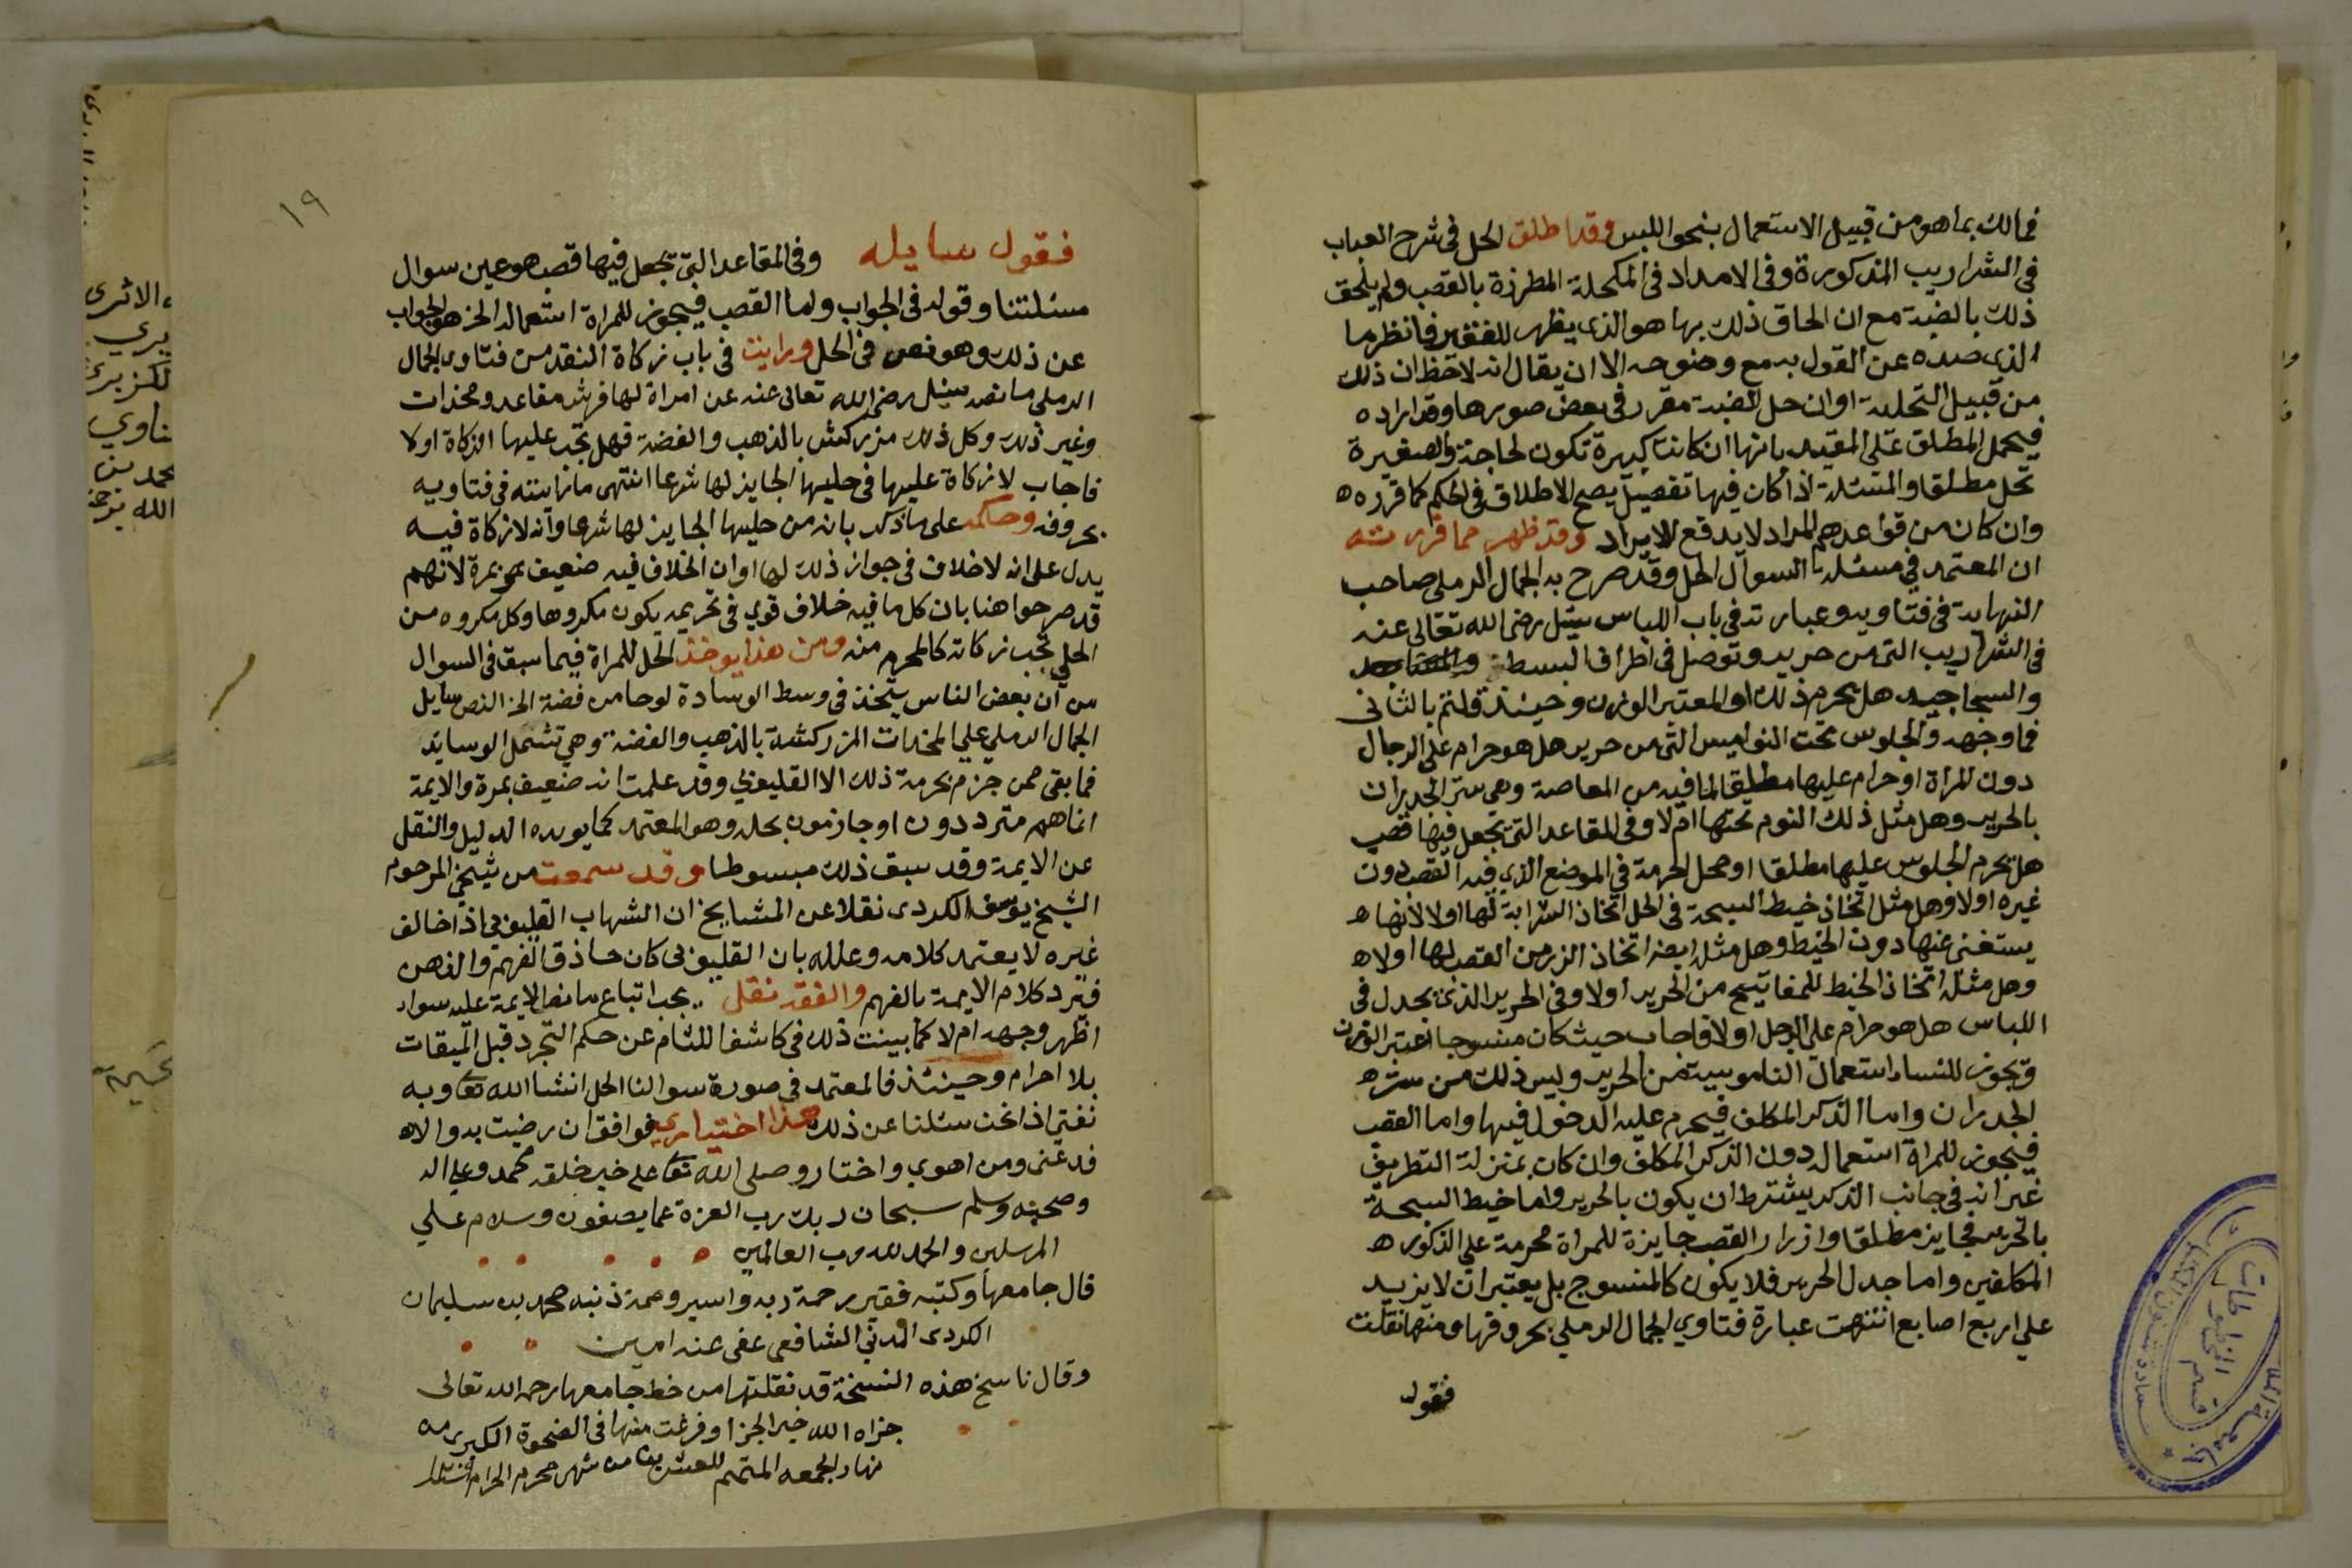 فمالك بما هو من قبيل الاستعمال بنحو اللبس وقد اطلق الحل في شرح العباب
في الشراريب المذكورة وفي الامداد في المكحلة المطرزة بالقصب ولم يلحق
ذلك بالضبة مع ان الحاق ذلك بها هو الذي يظهر للفقير فانظر ما
الذي صده عن القول به مع وضوحه الا ان يقال انه لاحظ ان ذلك
من قبيل التحلية او ان حل الضبة مقرر في بعض صورها وقد اراده
فيحمل المطلق على المقيد بانها ان كانت كبيرة تكون لحاجة والصغيرة
تحل مطلقا والمسئلة اذا كان فيها تفصيل يصح الاطلاق في الحكم كما قرره
وان كان من قواعدهم المراد لا يدفع الايراد وقد ظهر مما قررته
ان المعتمد في مسئلة السوال الحل وقد صرح به الجمال الرملي صاحب
النهاية في فتاويه وعبارته في باب اللباس سيل رضي الله تعالى عنه
في الشراريب التي من حرير وتوصل في اطراف البسط
والسجاجيد هل يحرم ذلك او المعتبر الوزن وحينئذ قلتم بالثاني
فما وجهه والجلوس تحت النواميس التي من حرير هل هو حرام على الرجال
دون المراة او حرام عليها مطلقا لما فيه من المعاصة وهي ستر الجدران
بالحرير وهل مثل ذلك النوم تحتها ام لا وفي المقاعد التي تجعل فيها قصب
هل يحرم الجلوس عليها مطلقا او محل الحرمة في الموضع الذي فيه القصب دون
غيره اولا وهل مثل اتخاذ خيط السبحة في الحل اتخاذ الشرابة لها اولا لانها
يستغنى عنها دون الخيط وهل مثله ايضا اتخاذ الزر من القصب لها اولا
وهل مثله اتخاذ الخيط للمفاتيح من الحرير اولا وفي الحرير الذي يجدل في
اللباس هل هو حرام على الرجل اولا فاجاب حيث كان منسوجا اعتبر الوزن
ويجوز للنساء استعمال الناموسية من الحرير وليس ذلك من ستر
الجدران واما الذكر المكلف فيحرم عليه الدخول فيها واما القصب
فيجوز للمراة استعماله دون الذكر المكلف وان كان بمنزلة التطريف
غير انه في جانب الذكر يشترط ان يكون بالحرير واما خيط السبحة
بالحرير فجايز مطلقا وازرار القصب جايزة للمراة محرمة على الذكور
المكلفين واما جدل الحرير فلا يكون كالمنسوج بل يعتبر ان لا يزيد
على اربع اصابع انتهت عبارة فتاوي الجمال الرملي بحروفها ومنها نقلت
فقول
١٩
فقول سايله وفي المقاعد التي تجعل فيها قصب هو عين سوال
مسئلتنا وقوله في الجواب واما القصب فيجوز للمراة استعماله الخ هو الجواب
عن ذلك وهو نص في الحل ورايت في باب زكاة النقد من فتاوي الجمال
الرملي ما نصه سيل رضي الله تعالى عنه عن امراة لها فرش مقاعد ومخدات
وغير ذلك وكل ذلك مزركش بالذهب والفضة فهل تجب عليها الزكاة اولا
فاجاب لا زكاة عليها في حليها الجايز لها شرعا انتهى ما رايته في فتاويه
بحروفه وحكمه على ما ذكر بانه من حليها الجايز لها شرعا وانه لا زكاة فيه
يدل على انه لا خلاف في جواز ذلك لها او ان الخلاف فيه ضعيف بمرة لانهم
قد صرحوا هنا بان كل ما فيه خلاف قوي في تحريمه يكون مكروها وكل مكروه من
الحلي تجب زكاته كالمحرم منه ومن هذا يوخذ الحل للمراة فيما سبق في السوال
من ان بعض الناس يتخذ في وسط الوسادة لوحا من فضة الخ النص سايل
الجمال الرملي على المخدات المزركشة بالذهب والفضة وهي تشمل الوسايد
فما بقي ممن جزم بحرمة ذلك الا القليوبي وقد علمت انه ضعيف بمرة والايمة
اناهم مترددون او جازمون بحله وهو المعتمد كما يويده الدليل والنقل
عن الايمة وقد سبق ذلك مبسوطا وقد سمعت من شيخي المرحوم
الشيخ يوسف الكردي نقلا عن المشايخ ان الشهاب القليوبي اذا خالف
غيره لا يعتمد كلامه وعلله بان القليوبي كان حاذق الفهم والذهن
فيرد كلام الايمة بالفهم والفقه نقل يجب اتباع ما نص الايمة عليه سواء
اظهر وجهه ام لا كما بينت ذلك في كاشف اللثام عن حكم التجرد قبل الميقات
بلا احرام وحينئذ فالمعتمد في صورة سوالنا الحل انشا الله تعا وبه
نفتي اذا نحن سئلنا عن ذلك هذا اختياري فوافق ان رضيت به والا
فدعني ومن اهوي واختار وصلى الله تعا على خير خلقه محمد وعلى اله
وصحبه وسلم سبحان ربك رب العزة عما يصفون وسلام على
المرسلين والحمد لله رب العالمين
قال جامعها وكتبه فقير رحمة ربه واسير وصمة ذنبه محمد بن سليمان
الكردي المدني الشافعي عفى عنه امين
وقال ناسخ هذه النسخة قد نقلتها من خط جامعها رحمه الله تعالى
جزاه الله خير الجزا وفرغت منها في الضحوة الكبرى من
نهار الجمعه المتمم للعشرين من شهر محرم الحرام